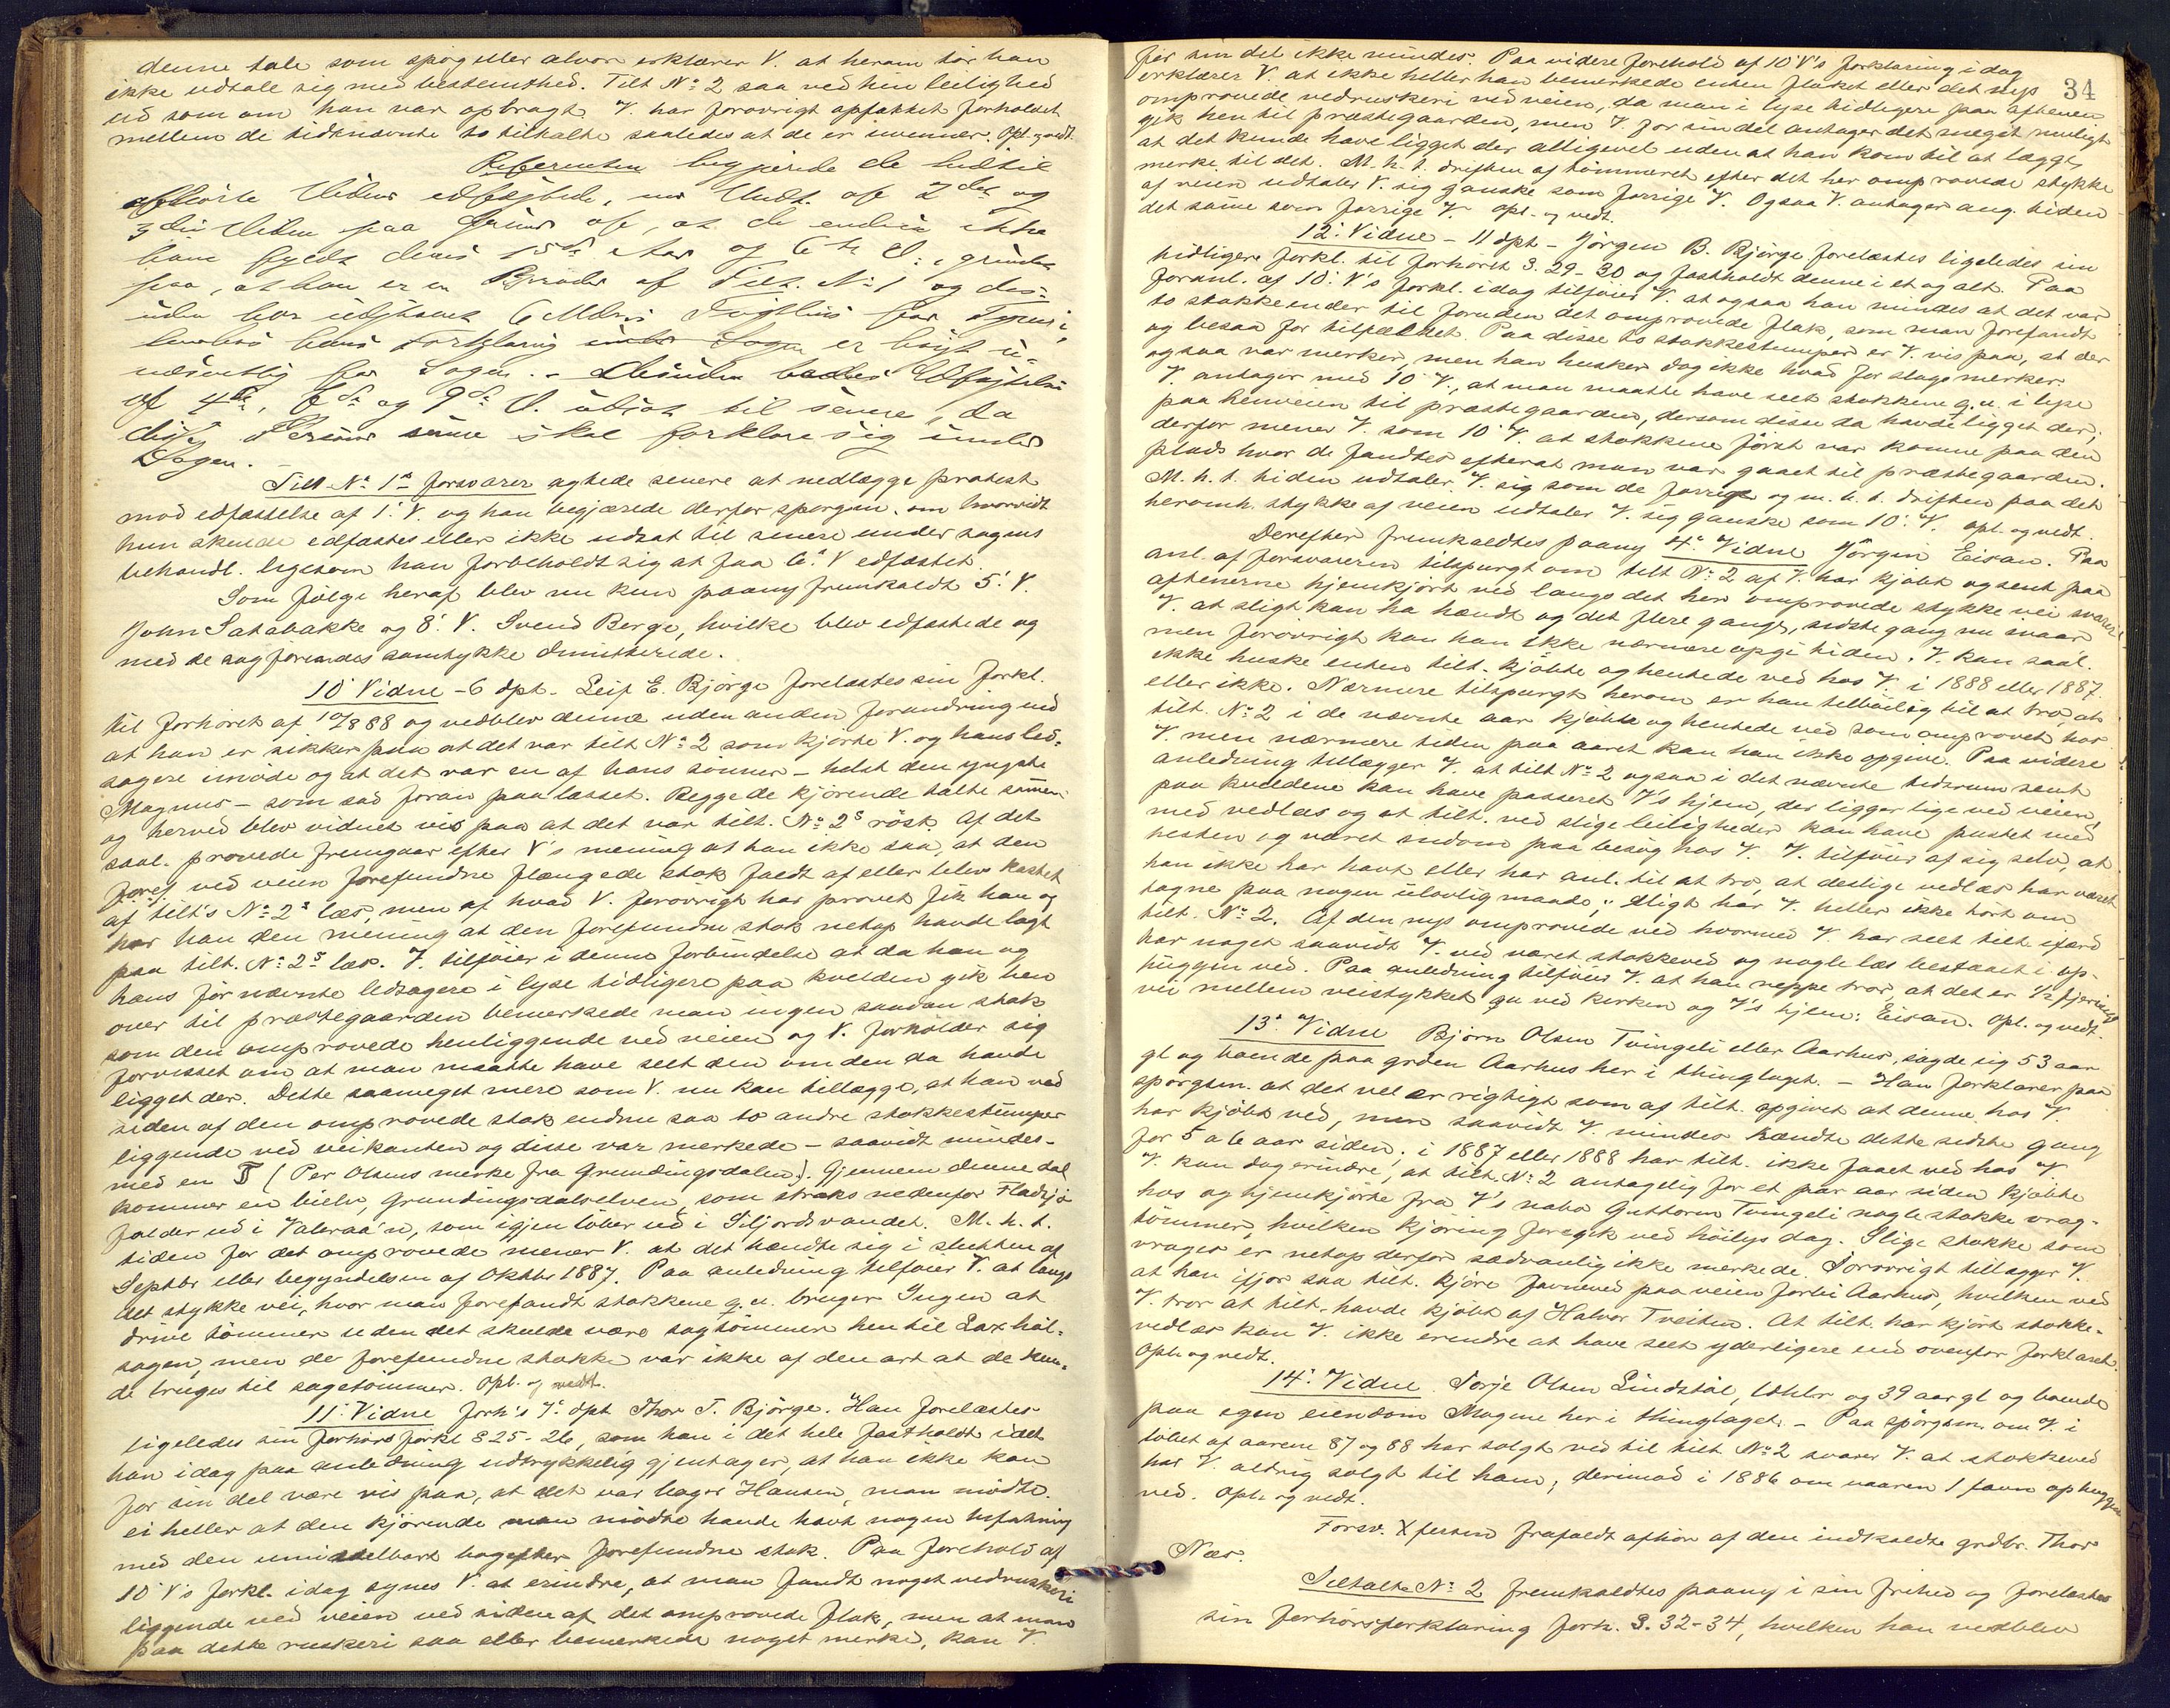 denne tale som spøg eller alvor erklærer V. at herom tør han
ikke udtale sig med bestemthed. Tilt No 2 saa ved hin leilighed
ud som om han var opbragt. V. har forøvrigt opfattet forholdet
mellem de tidtnævnte to tiltalte saaledes at de er uvenner. Opl. og vedt.
Referenten begjærede de hidtil
afhørte Vidner edfæstede, med Undt. af 2det og
3die Viden paa Grund af, at de endnu ikke
have fyldt deres 15de Aar og 6te V. grundet
paa, at han er en Broder af Tilt. No 1 og des-
uden har udstaaet 6 Mdrs Fængsel for Tyveri,
hans Forklaring Sagen er høist u-
væsentlig for Sagen. - Desuden bedes Edfæstelsen
af 4de, 6te og 9de V. udsat til senere, da
disse Personer senere skal forklare sig under
Sagen. -
Tilt No 1s forsvarer agtede senere at nedlægge protest
mod edfæstelse af 1' V. og han begjærede derfor spørgsm. om hvorvidt
hun skulde edfæstes eller ikke udsat til senere under sagens
behandl. ligesom han forbeholdt sig at faa 6' V edfæstet.
Som følge heraf blev nu kun paany fremkaldt 5' V.
John Satabakke og 8' V. Svend Berge, hvilke blev edfæstede og
med de sagførendes samtykke dimitterede.
10' Vidne - 6 dpt - Leif E. Bjørge forelæstes sin forkl.
til forhøret af 10/8 88 og vedblev denne uden anden forandring end
at han er sikker paa at det var tilt No 2 som kjørte V. og hans led-
sagere imøde og at det var en af hans sønner - helst den yngste
Magnus - som sad foran paa læsset. Begge de kjørende talte sammen
og herved blev vidnet vis paa at det var tilt. No 2s røst. Af det
saal. provede fremgaar efter V's mening at han ikke saa, at den
ved veien forefundne flængede stok faldt af eller blev kastet
af tilt's No 2s læs, men af hvad V. forøvrigt har provet fik han og
har han den mening at den forefundne stok netop havde lagt
paa tilt. No 2s læs. V. tilføier i denne forbindelse at da han og
hans før nævnte ledsagere i lyse tidligere paa kvelden gik hen
over til præstegaarden bemerkede man ingen saadan stok
som den omprovede henliggende ved veien og V. forholder sig
forvisset om at man maatte have seet den om den da havde
ligget der. Dette saameget mere som V. nu kan tillægge, at han ved
siden af den omprovede stok endnu saa to andre stokkestumper
liggende ved veikanten og disse var merkede - saavidt mindes -
med en (Per Olsens merke fra Grundingsdalen). Gjennem denne dal
kommer en bielv, Grundingsdalselven, som straks nedenfor Fladsjø
falder ud i Valeraa'n, som igjen løber ud i Siljordsvandet. M. h. t.
tiden for det omprovede mener V. at det hændte sig i slutten af
Septbr eller begyndelsen af Oktbr 1887. Paa anledning tilføier V. at langs
det stykke vei, hvor man forefandt stokkene q. u. bruger Ingen at
drive tømmer uden det skulde være sagtømmer hen til Laxhøl-
sagen, men de forefundne stokke var ikke af den art at de kun-
de bruges til sagetømmer. Opl. og vedt.
11' Vidne forh's 7' dpt Thor T. Bjørge. Han forelæstes
ligeledes sin forhørsforkl S 25-26, som han i det hele fastholdt idet
han idag paa anledning udtrykkelig gjentager, at han ikke kan
for sin del være vis paa, at det var bager Hansen, man mødte
ei heller at den kjørende man mødte havde havt nogen befatning
med den umiddelbart bagefter forefundne stok. Paa forehold af
10' V's forkl. idag synes V. at erindre, at man fandt noget vedruskeri
liggende ved veien ved siden af det omprovede flak, men at man
paa dette ruskeri saa eller bemerkede noget merke, kan V.
34
for sin del ikke mindes. Paa videre forehold af 10' V's forklaring idag
erklærer V. at ikke heller han bemerkede enten flaket eller det nys
omprovede vedruskeri ved veien, da man i lyse tidligere paa aftenen
gik hen til præstegaarden, men V. for sin del antager det meget muligt
at det kunde have ligget der alligevel uden at han kom til at lægge
merke til det. M. h. t. driften af tømmeret efter det her omprovede stykke
af veien udtaler V. sig ganske som forrige V. Ogsaa V. antager ang. tiden
det samme som forrige V. Opl. og vedt.
12' Vidne - 11 dpt - Jørgen B. Bjørge forelæstes ligeledes sin
tidligere forkl. til forhøret S. 29-30 og fastholdt denne i et og alt. Paa
foranl. af 10' V's forkl. idag tilføier V. at ogsaa han mindes at det var
to stokkeender til foruden det omprovede flak, som man forefandt
og besaa for tilfældet. Paa disse to stokkestumper er V. vis paa, at der
ogsaa var merker, men han husker dog ikke hvad for slags merker.
V. antager med 10' V., at man maatte have seet stokkene q. u. i lyse
paa henveien til præstegaarden, dersom disse da havde ligget der;
derfor mener V. som 10' V. at stokkene først var komne paa den
plads hvor de fandtes efterat man var gaaet til præstegaarden.
M. h. t. tiden udtaler V. sig som de forrige og m. h. t. driften paa det
heromh. stykke af veien udtaler V. sig ganske som 10' V. Opl. og vedt.
Derefter fremkaldtes paany 4' Vidne Jørgen Eisan. Paa
anl. af forsvareren tilspurgt om tilt No 2 af V. har kjøbt og sent paa
aftenerne hjemkjørt ved langs det her omprovede stykke vei svarer
V. at sligt kan ha hændt og det flere gange, sidste gang nu ivaar
men forøvrigt kan han ikke nærmere opgi tiden. V. kan saal.
ikke huske enten tilt. kjøbte og hentede ved hos V. i 1888 eller 1887
eller ikke. Nærmere tilspurgt herom er han tilbøielig til at tro, at
tilt. No 2 i de nævnte aar kjøbte og hentede ved som omprovet hos
V. men nærmere tiden paa aaret kan han ikke opgive. Paa videre
anledning tillægger V. at tilt No 2 ogsaa i det nævnte tidsrum sent
paa kveldene kan have passeret V's hjem, der ligger lige ved veien,
med vedlæs og at tilt. ved slige leiligheder kan have pustet med
hesten og været indom paa besøg hos V. V. tilføier af sig selv, at
han ikke har havt eller har anl. til at tro, at deslige vedlæs har været
tagne paa nogen ulovlig maade; sligt har V. heller ikke hørt om
tilt. No 2. Af den nys omprovede ved hvormed V. har seet tilt ifærd
har noget saavidt V. ved været stokkeved og nogle læs bestaaet i op-
huggen ved. Paa anledning tilføier V. at han neppe tror, at det er 1/2 fjerings
vei mellem veistykket qu ved kirken og V's hjem: Eisan. Opl. og vedt.
13' Vidne Bjørn Olsen Tvingeli eller Aarhus, sagde sig 53 aar
gl og boende paa grden Aarhus her i thinglaget. - Han forklarer paa
spørgsm. at det vel er rigtigt som af tilt. opgivet at denne hos V.
har kjøbt ved, men saavidt V. mindes hændte dette sidste gang
for 5 a 6 aar siden; i 1887 eller 1888 har tilt. ikke faaet ved hos V.
V. kan dog erindre, at tilt. No 2 antagelig for et par aar siden kjøbte
hos og hjemkjørte fra V's nabo Guttorm Tvingeli nogle stokke vrag-
tømmer, hvilken kjøring foregik ved høilys dag. Slige stokke som
vrages er netop derfor sædvanlig ikke merkede. Forøvrigt tillægger V.
at han ifjor saa tilt. kjøre favneved paa veien forbi Aarhus, hvilken ved
V. tror at tilt. havde kjøbt af Halvor Tveiten. At tilt. har kjørt stokke-
vedlæs kan V. ikke erindre at have seet yderligere end ovenfor forklaret.
Opl. og vedt.
14' Vidne. Torje Olsen Lindstøl, Uhlbr og 39 aar gl og boende
paa egen eiendom Mogene her i thinglaget. - Paa spørgsm. om V. i
løbet af aarene 87 og 88 har solgt ved til tilt No 2 svarer V. at stokkeved
har V. aldrig solgt til ham; derimod i 1886 om vaaren 1 favn ophuggen
ved. Opl. og vedt.
Forsv. frafaldt afhør af den indkaldte grdbr. Thor
Næs.
Tiltalte No 2 fremkaldtes paany i sin frihed og forelæstes
sin forhørsforklaring forh. S. 32-34, hvilken han vedblev